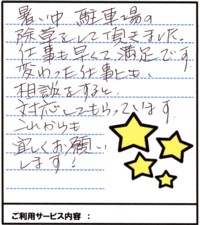 暑い中 駐車場の
除草をして頂きました。
仕事も早くて、満足です
変わった仕事にも、
相談をすると、
対応してもらっています
これからも
宜しくお願い
します!
ご利用サービス内容 :